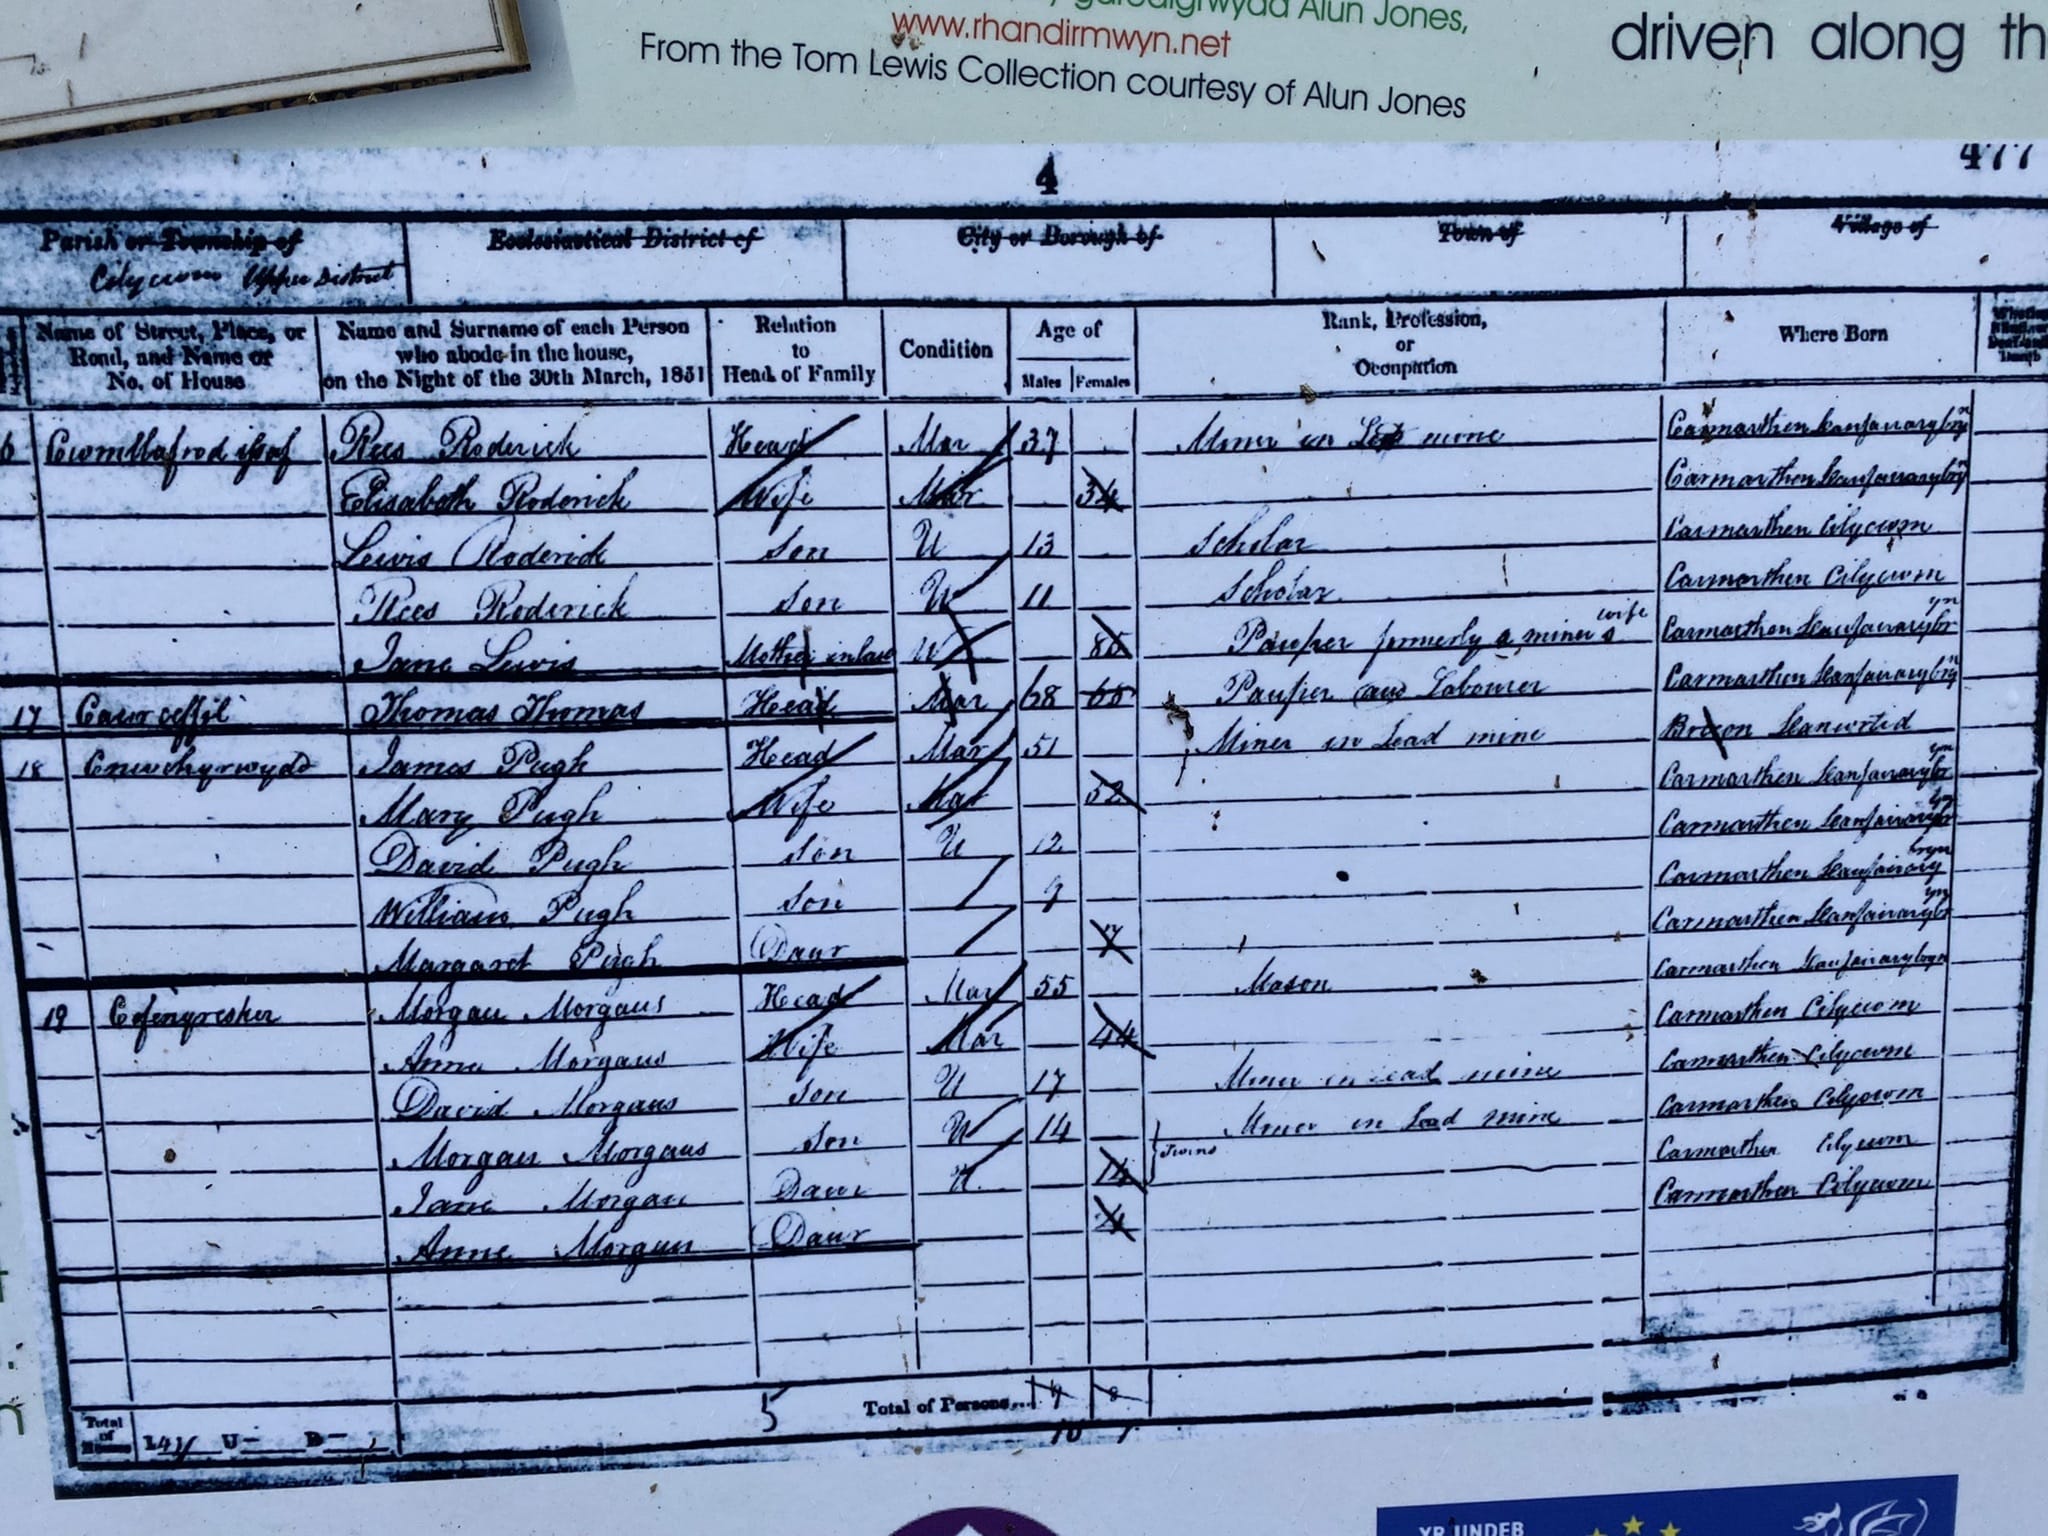 Alun Jones,
www.rhandirmwyn.net
From the Tom Lewis Collection courtesy of Alun Jones
driven along th
4
477
Parish or Township of Ecclesiastical District of City or Borough of Town of Village of
Cilycwm Upper District
Name of Street, Place, or Road, and Name or No. of House Name and Surname of each Person who abode in the house, on the Night of the 30th March, 1851 Relation to Head of Family Condition Age of Males Females Rank, Profession, or Occupation Where Born
Rees Roderick Head Mar 37 Miner in mine Carmarthen
Elisabeth Roderick Wife Mar 34 Carmarthen
Lewis Roderick Son U 13 Scholar Carmarthen Cilycwm
Rees Roderick Son U 11 Scholar Carmarthen Cilycwm
Jane Lewis Mother in law W Pauper formerly a miner's wife Carmarthen
17 Thomas Thomas Head Mar 68 Pauper Labourer Carmarthen
18 James Pugh Head Mar 51 Miner in Lead mine Brecon Llanwrtid
Mary Pugh Wife Mar 52 Carmarthen
David Pugh Son U 12 Carmarthen
William Pugh Son 9 Carmarthen
Margaret Pugh Daur Carmarthen
19 Morgan Morgans Head Mar 55 Mason Carmarthen
Anne Morgans Wife Mar 44 Carmarthen Cilycwm
David Morgans Son U 17 Miner in Lead mine Carmarthen Cilycwm
Morgan Morgans Son U 14 Twins Miner in Lead mine Carmarthen Cilycwm
Jane Morgan Daur U 14 Carmarthen Cilycwm
Anne Morgan Daur Carmarthen Cilycwm
5 Total of Persons...
Total of Houses U B
YR UNDEB